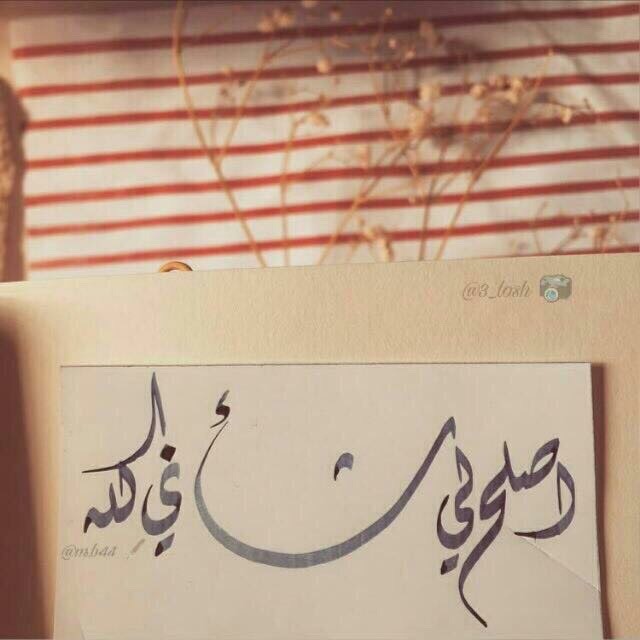 @3_losh
اصلح لي شأني كله
@msb44